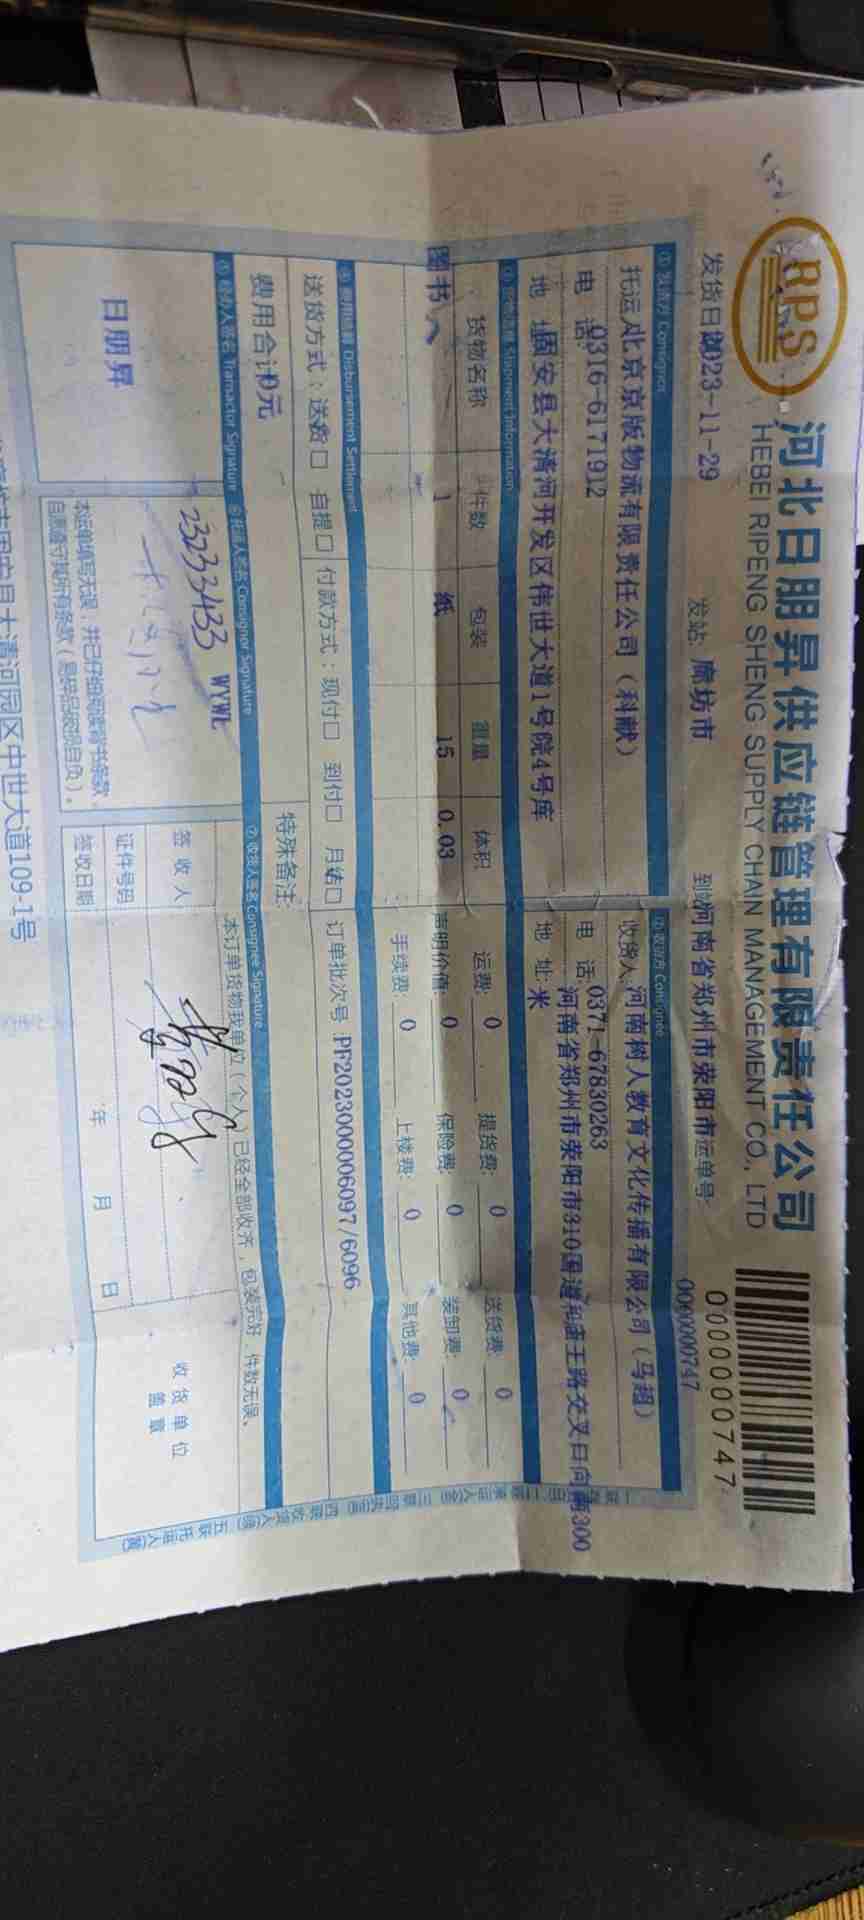 RPS
河北日朋昇供应链管理有限责任公司
HEBEI RIPENG SHENG SUPPLY CHAIN MANAGEMENT CO., LTD
0000000747
0000000747
发货日期2023-11-29 发站: 廊坊市 到站河南省郑州市荥阳市 运单号:
① 发货方 Consignor ② 收货方 Consignee
托运人北京京版物流有限责任公司（科献） 收货人:河南树人教育文化传播有限公司（马超）
电 话:0316-6171912 电 话:0371-67830263
地 址固安县大清河开发区伟世大道1号院4号库 地 址:河南省郑州市荥阳市310国道和 王路交叉口向南300
米
Information
货物名称 件数 包装 重量 体积 运费: 0 提货费: 0 送货费: 0
图书 1 纸 15 0.03 声明价值: 0 保险费: 0 装卸费: 0
手续费: 0 上楼费: 0 其他费: 0
④ 费用结算 Disbursement Settlement
送货方式：送货□ 自提□ 付款方式：现付□ 到付□ 月结□ 订单批次号:PF2023000006097/6096
费用合计0元 特殊备注:
⑤ 经办人签名 Transactor Signature ⑥ 托运人签名 Consignor Signature ⑦ 收货人签名 Consignee Signature
本订单货物我单位（个人）已经全部收齐，包装完好，件数无误。
日朋昇
23233433 WYWL
签 收 人:
证件号码
签收日期: 年 月 日
收货单位
盖章
本运单填写无误，并已仔细阅读背书条款，
自愿遵守其所有条款（易碎品破损自负）。
固安县大清河园区中世大道109-1号